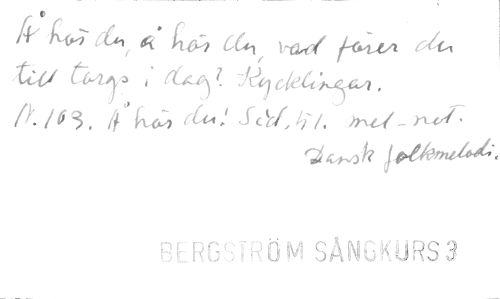 Å hör du, å hör du, vad förer du
till torgs i dag? Kycklingar.
N. 103. Å hör du! Sid. 51. mel-not.
Dansk folkmelodi.
BERGSTRÖM SÅNGKURS 3